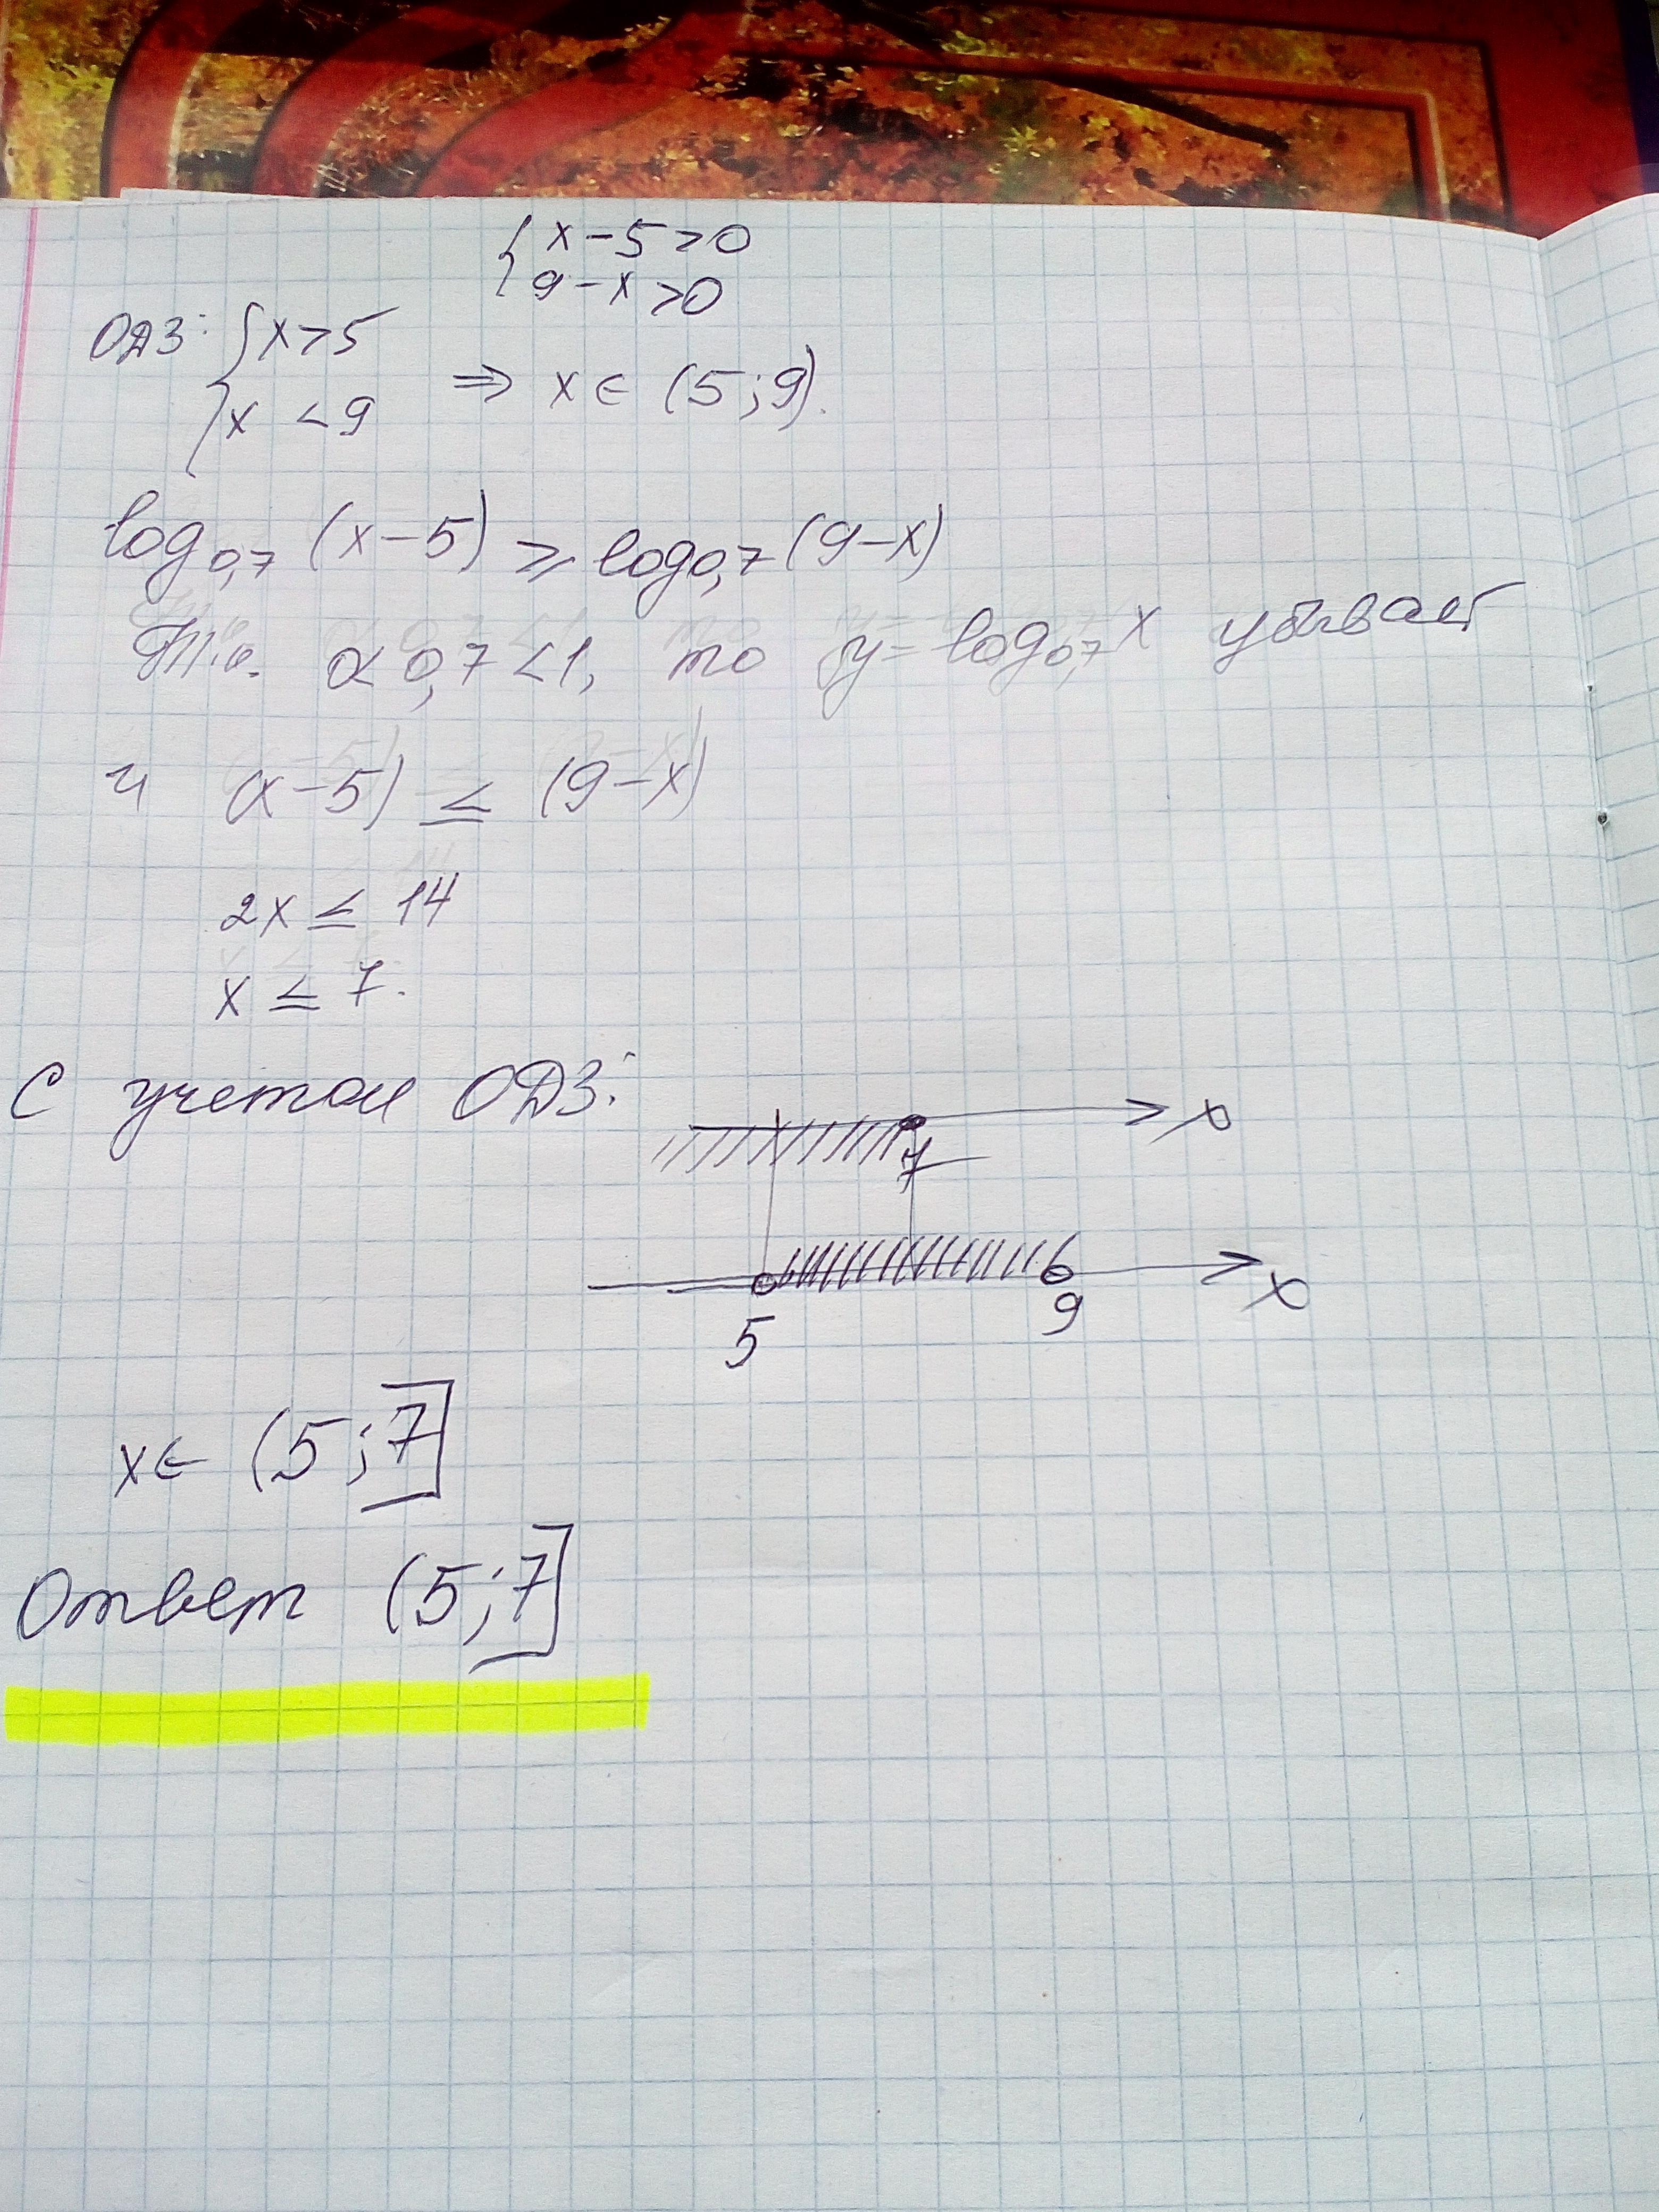 { x - 5 > 0
{ 9 - x > 0
ОДЗ: { x > 5
{ x < 9 ⇒ x ∈ (5; 9).
log₀,₇ (x-5) ≥ log₀,₇ (9-x)
0,7 < 1, то y = log₀,₇ x убывает
и (x-5) ≤ (9-x)
2x ≤ 14
x ≤ 7.
С учетом ОДЗ:
x
7
x
5 9
x ∈ (5; 7]
Ответ (5; 7]